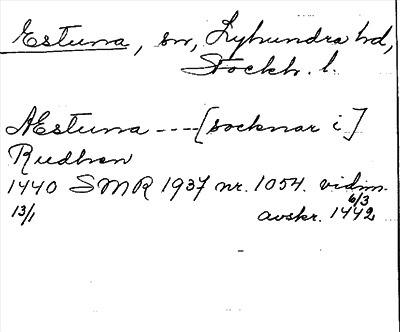 Estuna, sn, Lyhundra hd,
Stockh. l.
AEstuna ---- [socknar i]
Rudhen
1440 SMR 1937 nr. 1054. vidim.
13/1 avskr. 1442 6/3